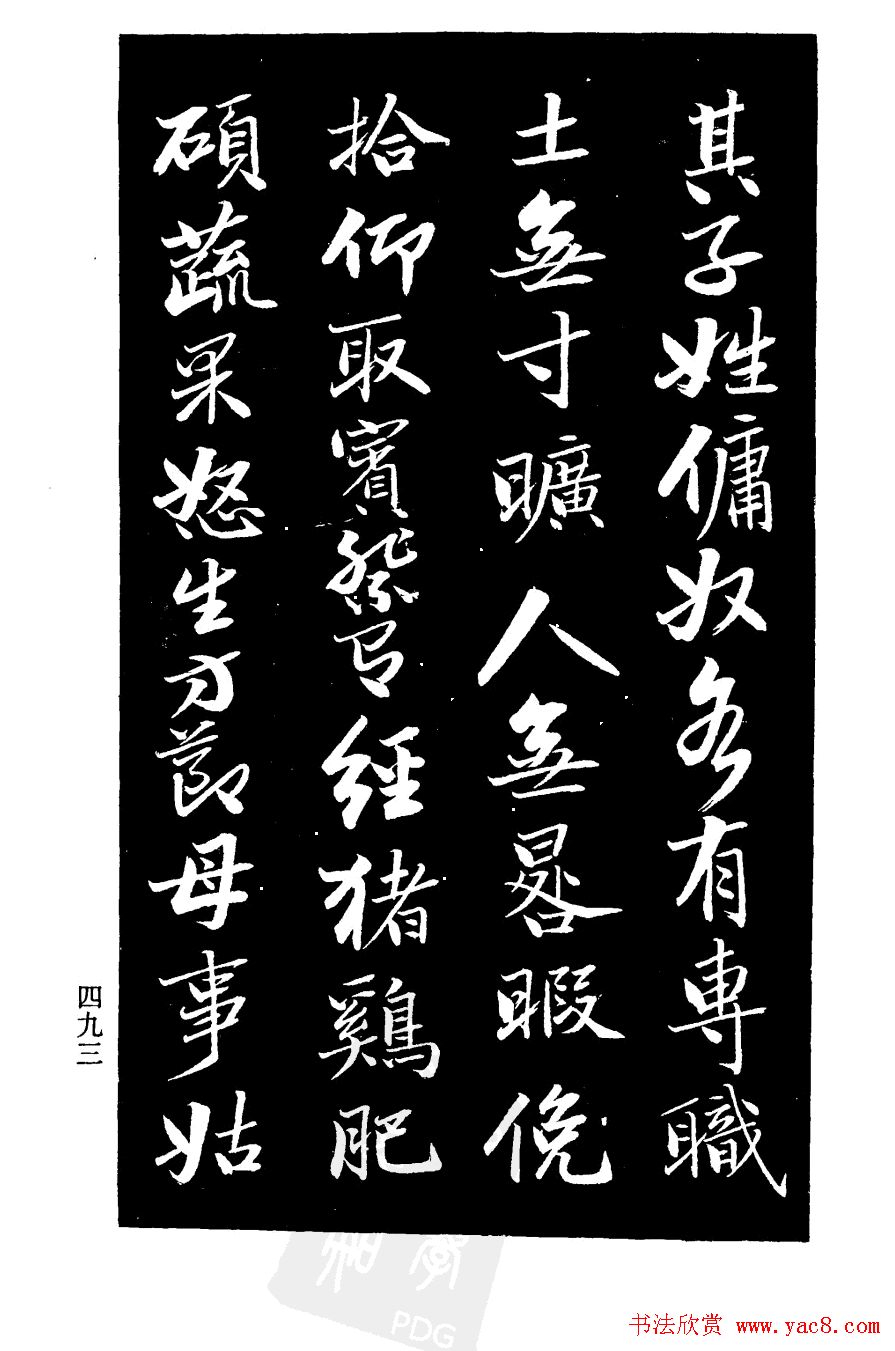 其子姓傭奴各有專職
土無寸曠人無晷暇俛
拾仰取賓祭經猪鷄肥
碩蔬果怒生方節母事姑
四九三
PDG
书法欣赏 www.yac8.com